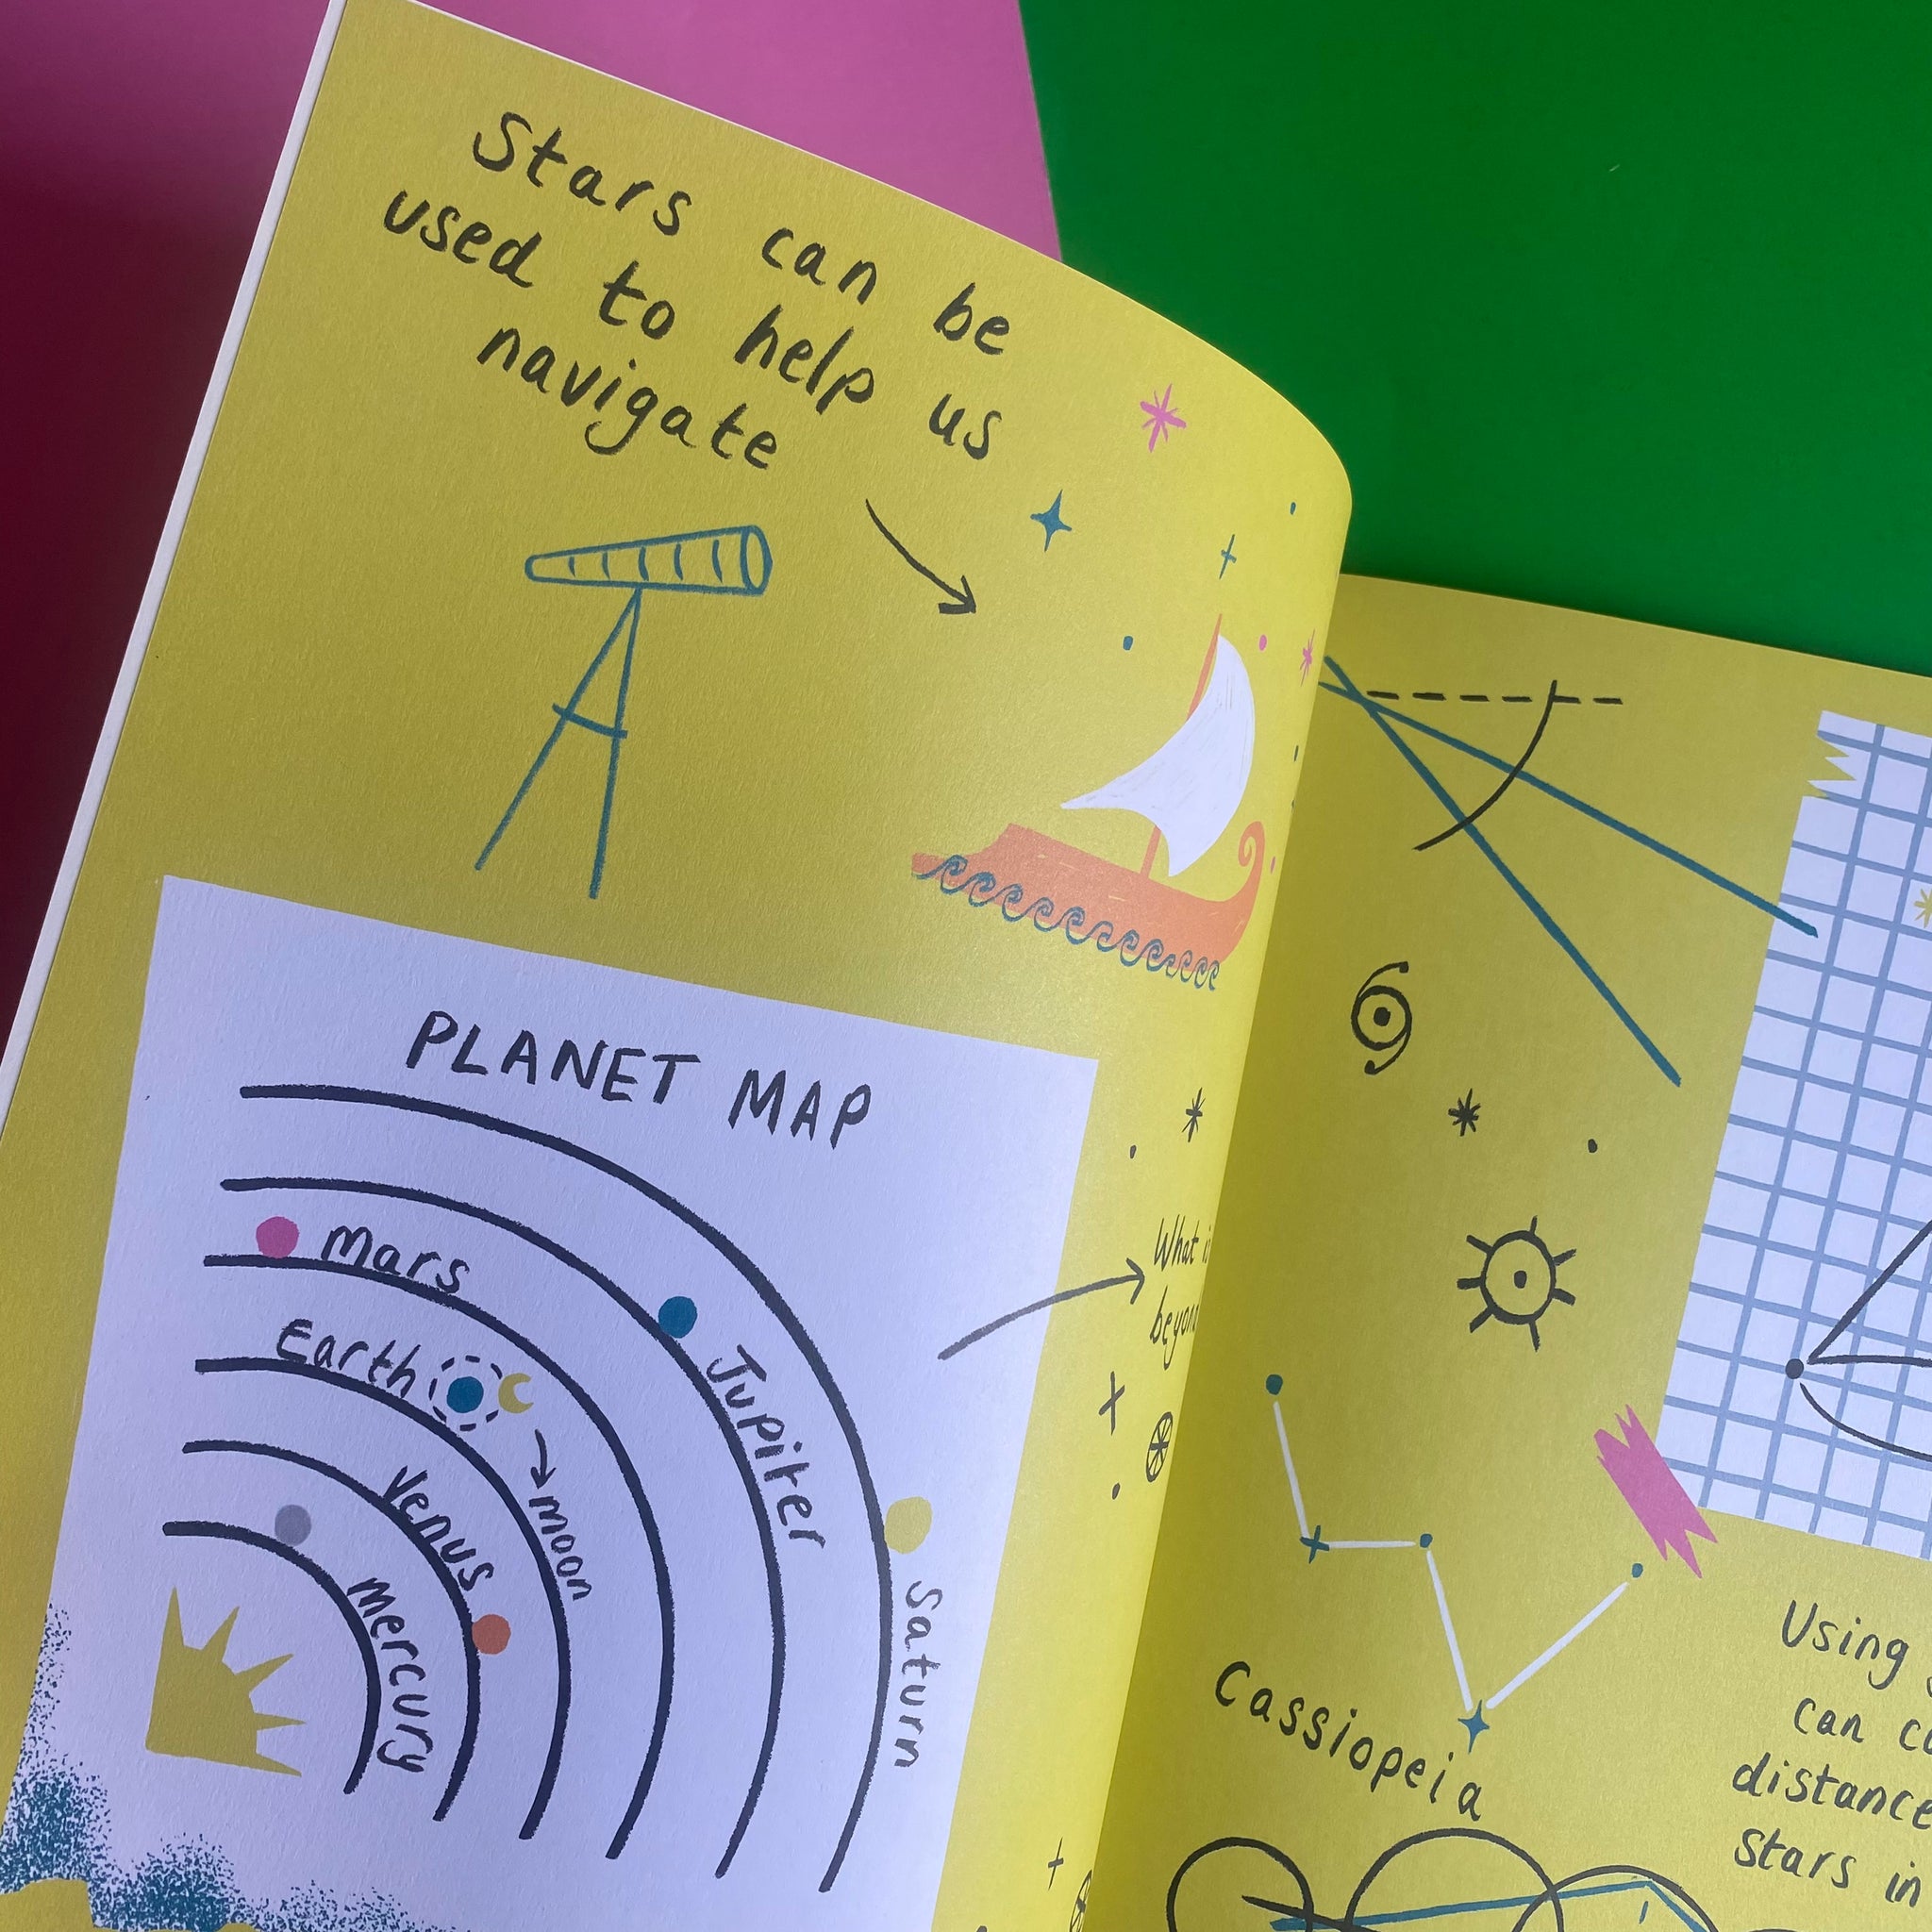 Stars can be
used to help us
navigate
PLANET MAP
Mars
Earth
Jupiter
Venus
moon
Mercury
Saturn
What
Cassiopeia
Using
can
distance
stars in